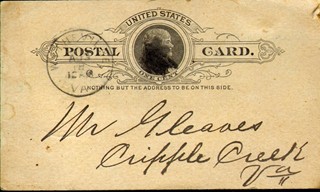 UNITED STATES
POSTAL CARD.
ONE CENT
NOTHING BUT THE ADDRESS TO BE ON THIS SIDE.
VA
Mr Gleaves
Cripple Creek
Va